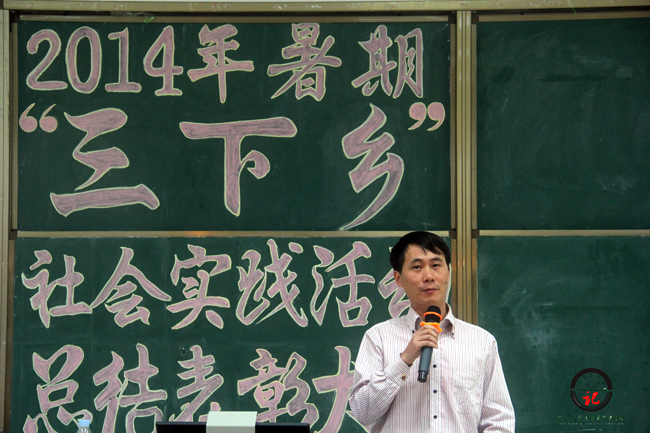 2014年暑期
“三下乡”
社会实践活动
总结表彰大
记